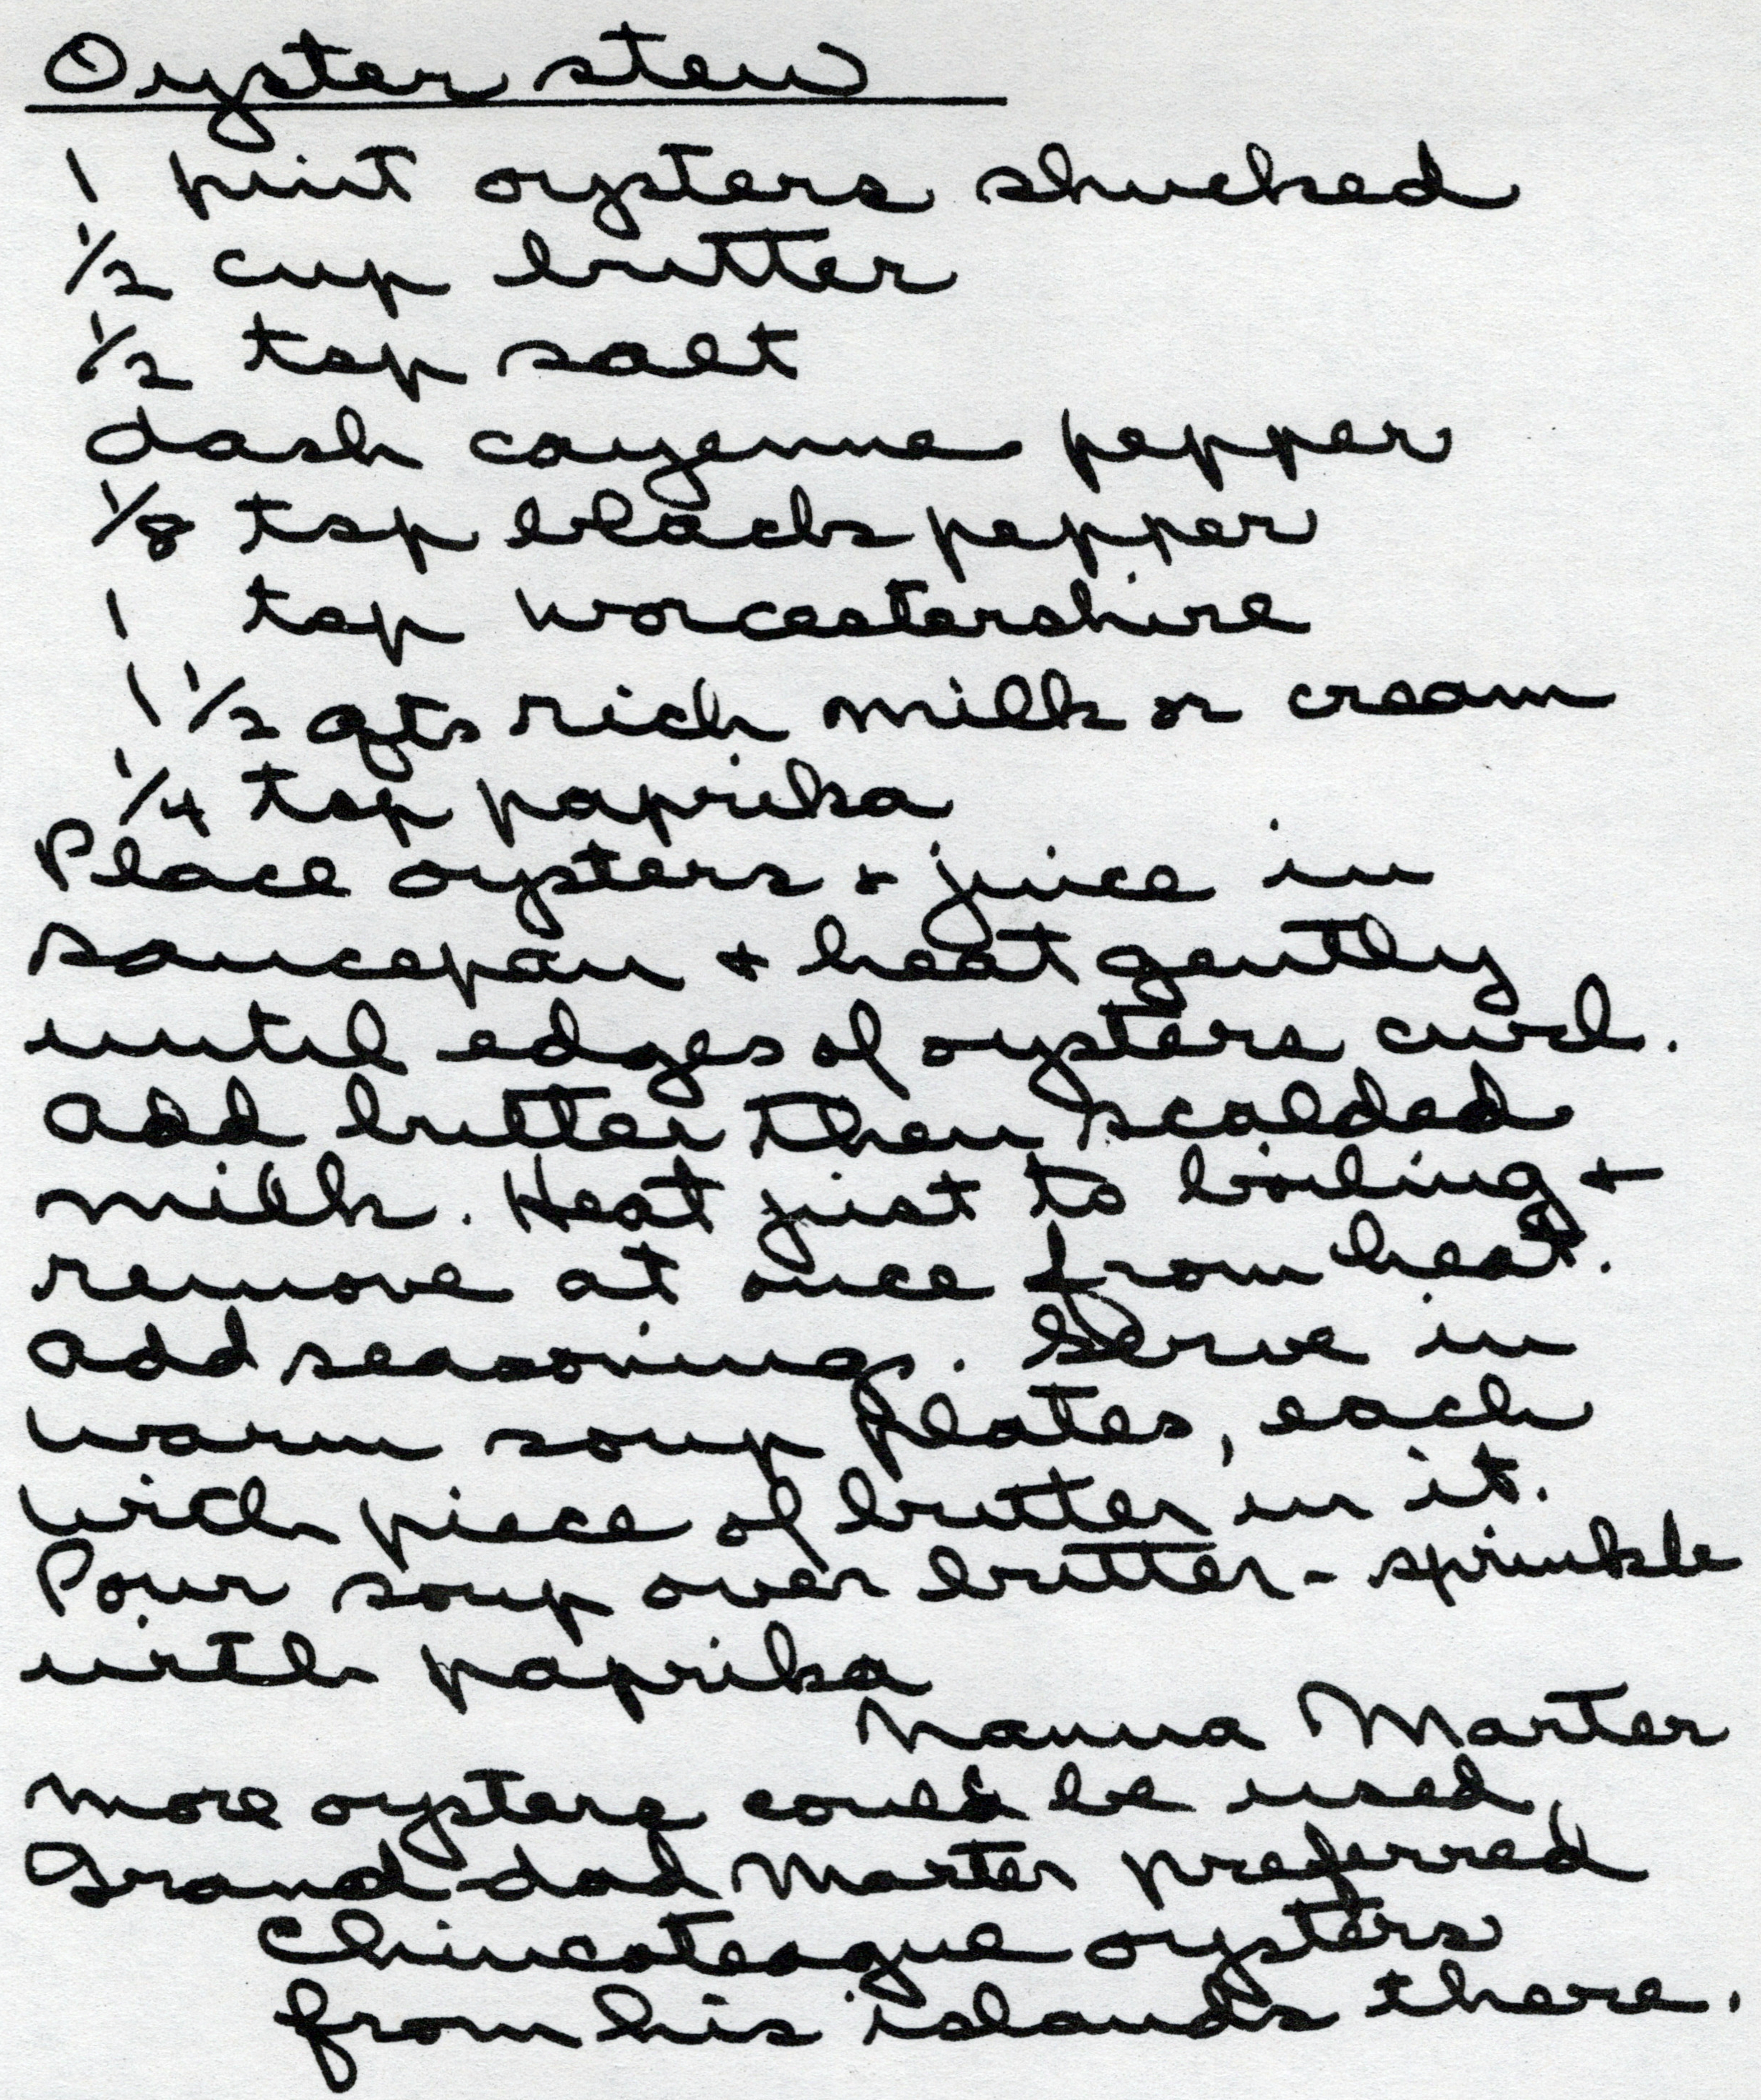 Oyster stew
1 pint oysters shucked
1/2 cup butter
1/2 tsp salt
dash cayenne pepper
1/8 tsp black pepper
1 tsp worcestershire
1 1/2 qts rich milk or cream
1/4 tsp paprika
Place oysters + juice in
saucepan + heat gently
until edges of oysters curl.
Add butter then scalded
milk. Heat just to boiling +
remove at once from heat.
Add seasonings. Serve in
warm soup plates, each
with piece of butter in it.
Pour soup over butter - sprinkle
with paprika
Nanna Marter
more oysters could be used,
Grand dad Marter preferred
Chincoteague oysters
from his islands there.